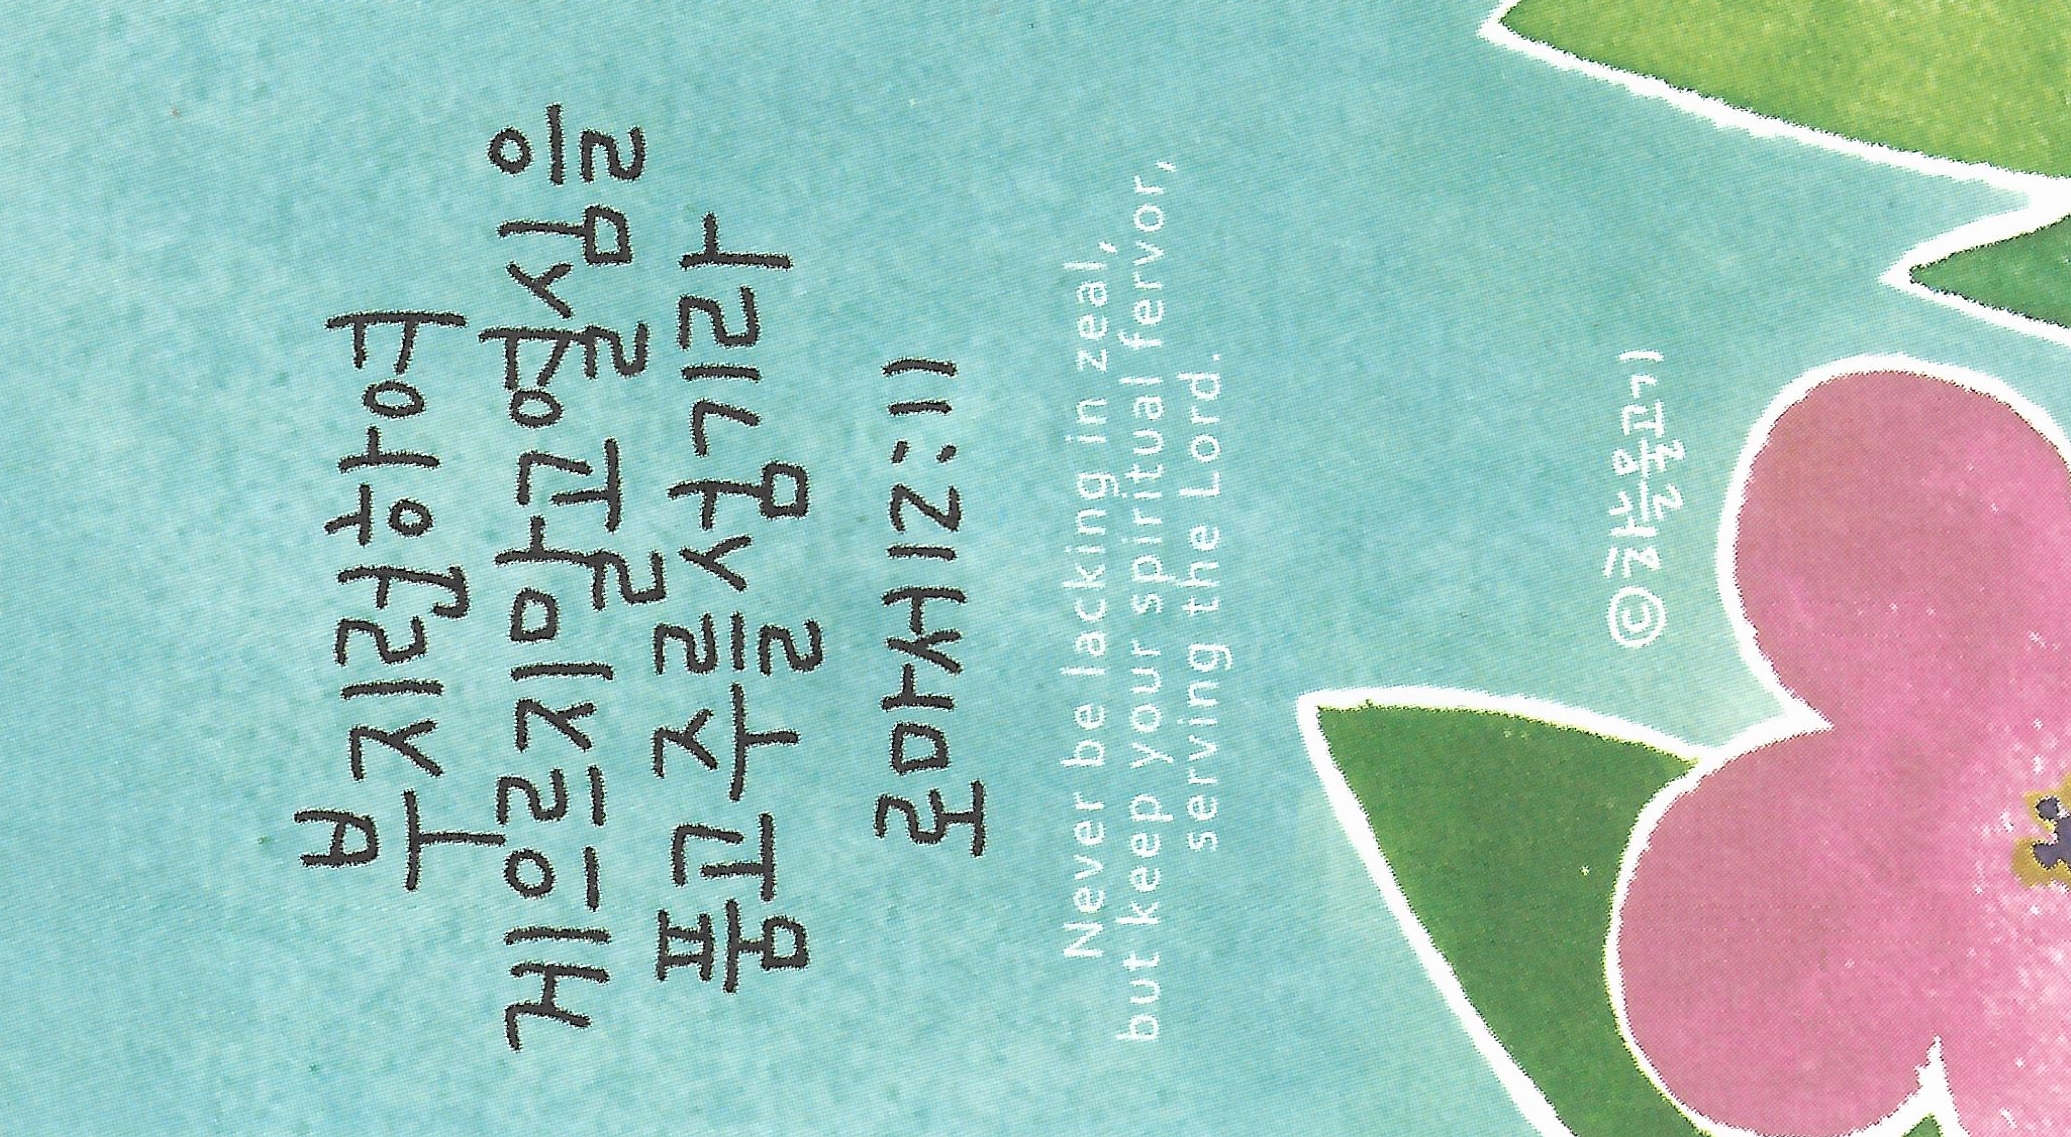 부지런하여
게으르지말고열심을
품고주를섬기라
로마서12:11
Never be lacking in zeal,
but keep your spiritual fervor,
serving the Lord.
©하늘물고기